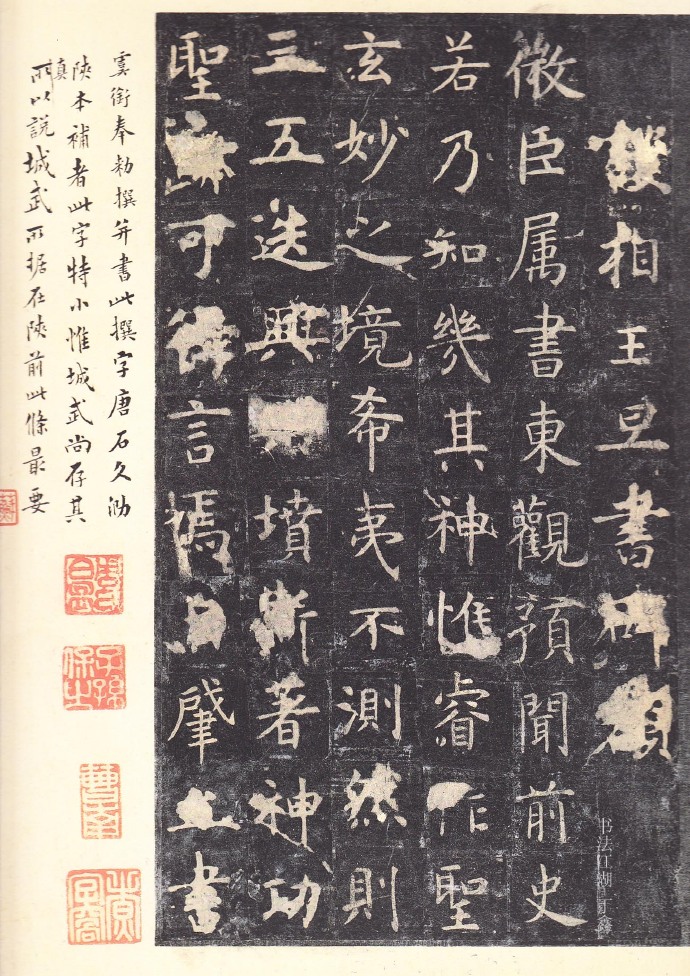 護相王旦書碑額
微臣属書東觀預聞前史
若乃知幾其神惟睿作聖
玄妙之境希夷不測然則
三五迭興墳斯著神功
聖迹可得言焉自肇立書
虞銜奉勑撰并書此撰字唐石久泐
陝本補者此字特小惟城武尚存其真
所以說城武所据在陝前此條最要
子孫保之
书法江湖